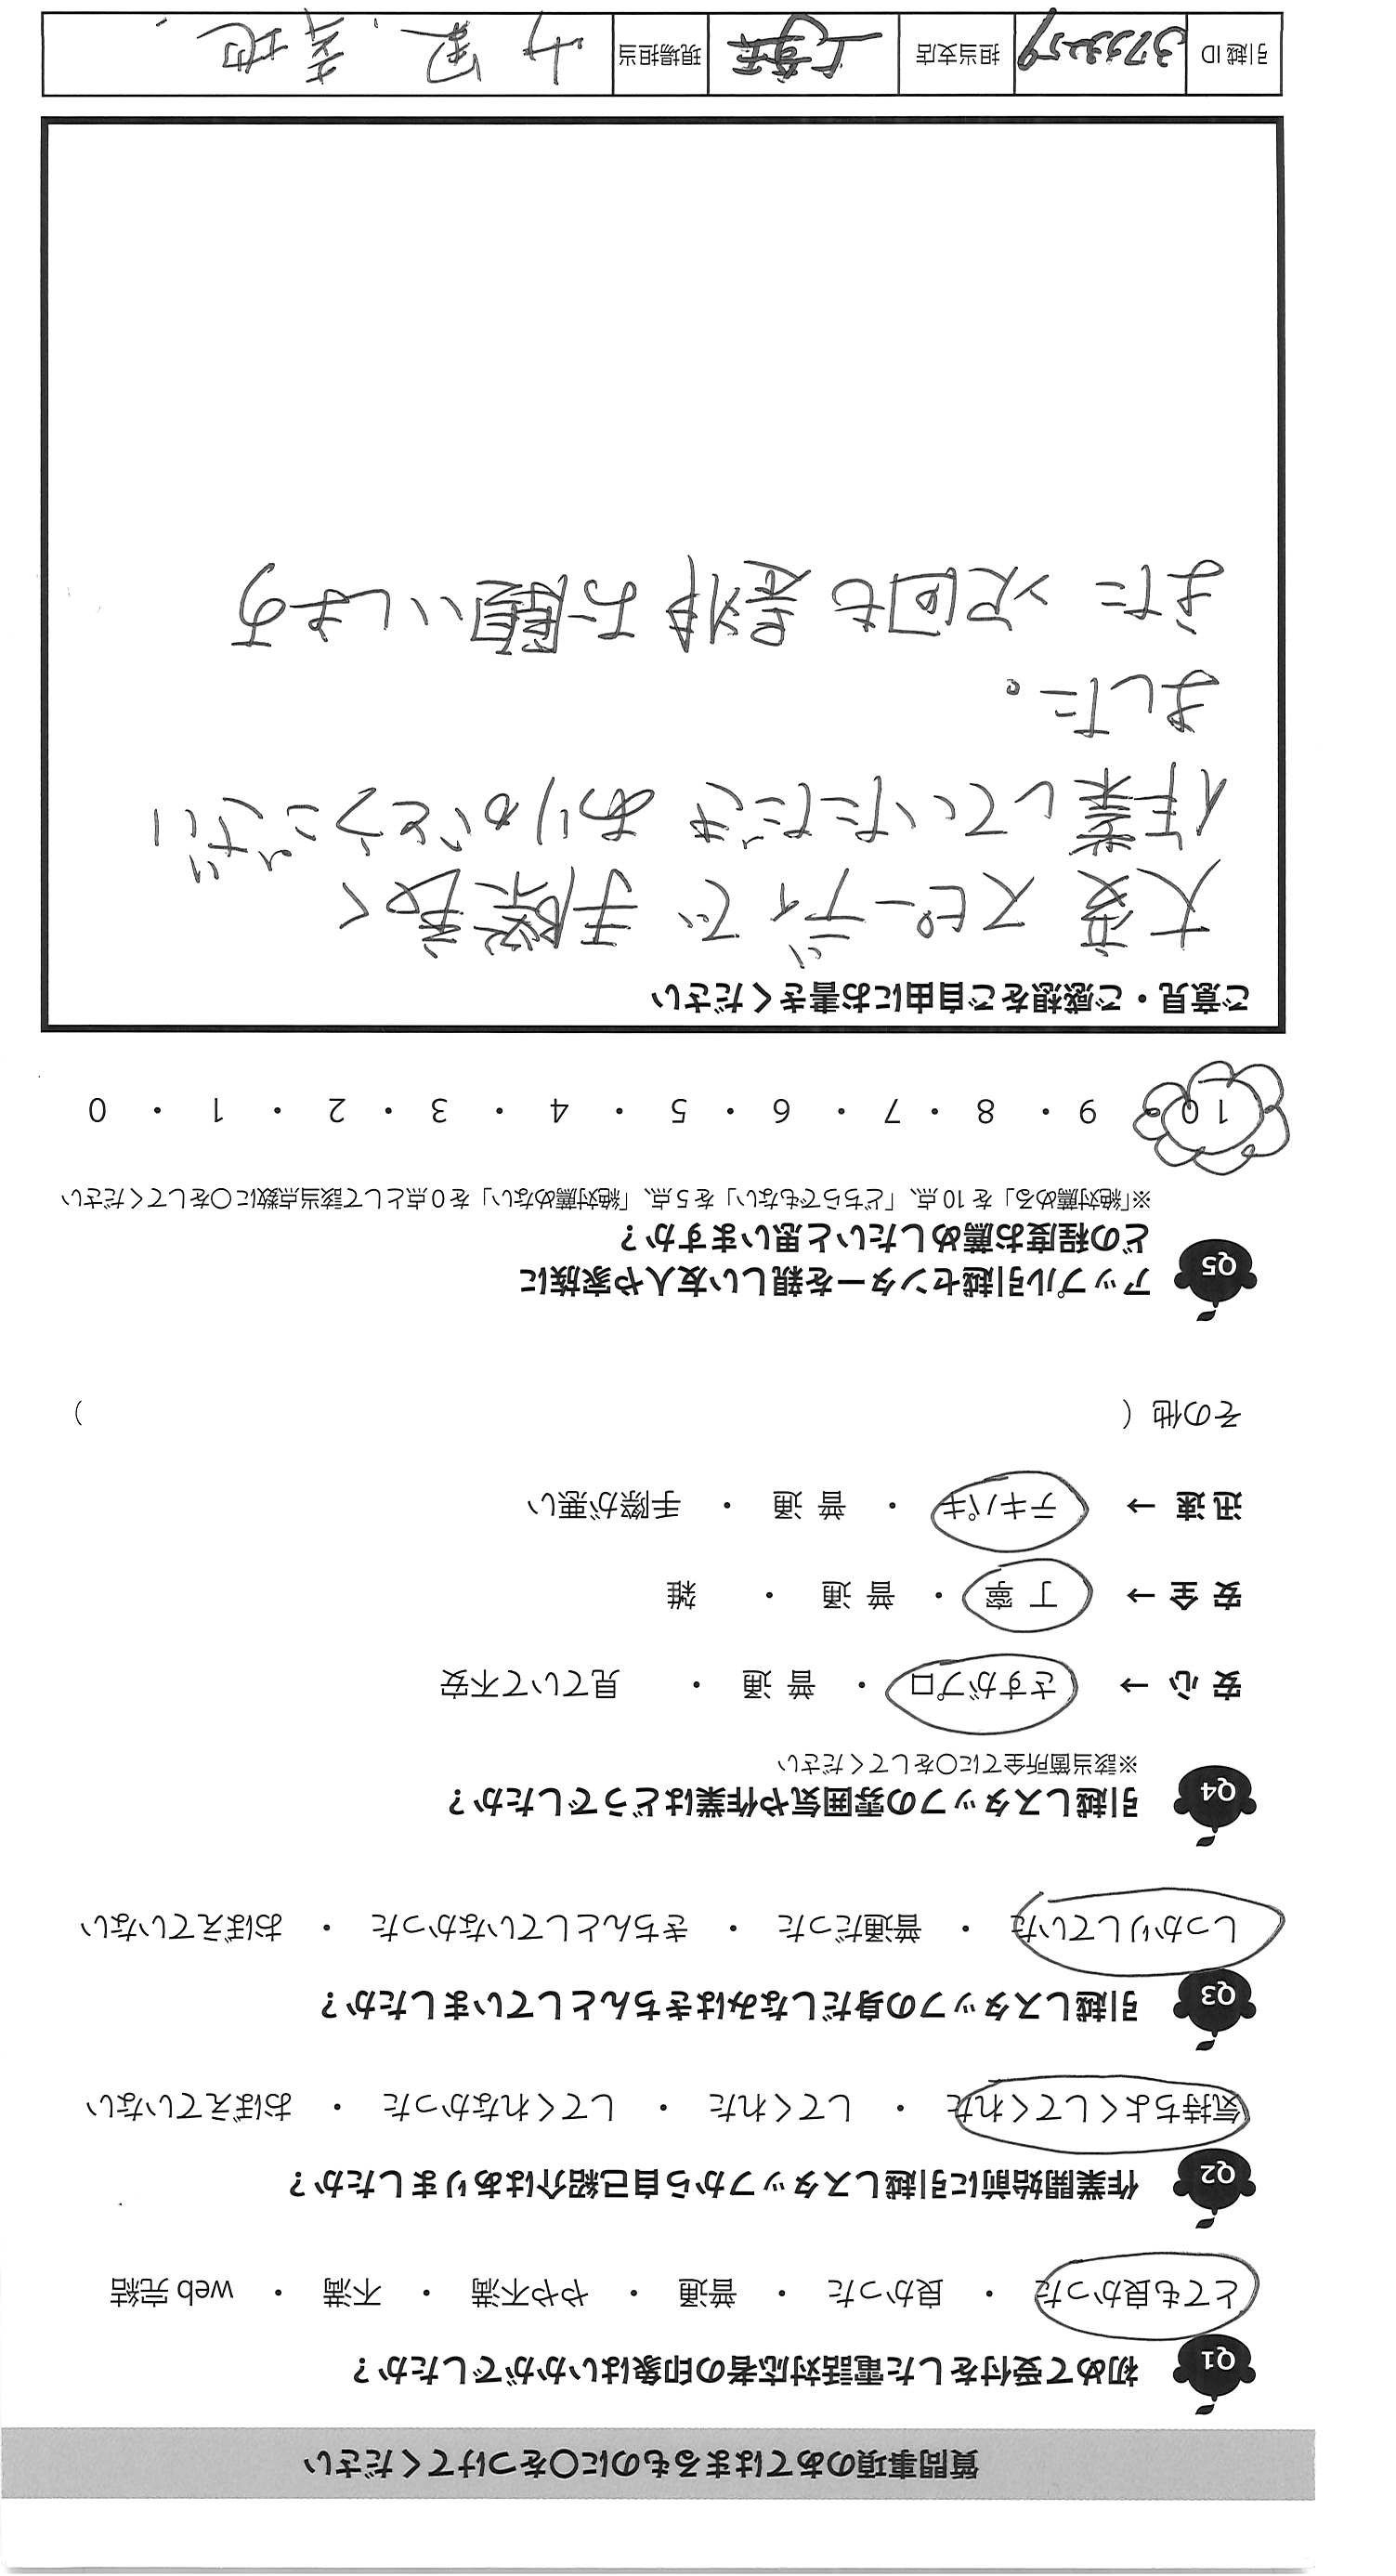 質問事項のあてはまるものに〇をつけてください
Q1 初めて受付をした電話対応者の印象はいかがでしたか？
とても良かった ・ 良かった ・ 普通 ・ やや不満 ・ 不満 ・ web 完結
Q2 作業開始前に引越しスタッフから自己紹介はありましたか？
気持ちよくしてくれた ・ してくれた ・ してくれなかった ・ おぼえていない
Q3 引越しスタッフの身だしなみはきちんとしていましたか？
しっかりしていた ・ 普通だった ・ きちんとしていなかった ・ おぼえていない
Q4 引越しスタッフの雰囲気や作業はどうでしたか？
※該当箇所全てに〇をしてください
安 心 → さすがプロ ・ 普 通 ・ 見ていて不安
安 全 → 丁 寧 ・ 普 通 ・ 雑
迅 速 → テキパキ ・ 普 通 ・ 手際が悪い
その他（ ）
Q5 アップル引越センターを親しい友人や家族に
どの程度お薦めしたいと思いますか？
※「絶対薦める」を 10 点、「どちらでもない」を 5 点、「絶対薦めない」を 0 点として該当点数に〇をしてください
10 ・ 9 ・ 8 ・ 7 ・ 6 ・ 5 ・ 4 ・ 3 ・ 2 ・ 1 ・ 0
ご意見・ご感想をご自由にお書きください
大変 スピーディで 手際良く
作業していただき ありがとうござい
ました。
また 次回も 是非 お願いします
引越 ID 担当支店 現場担当 菊地